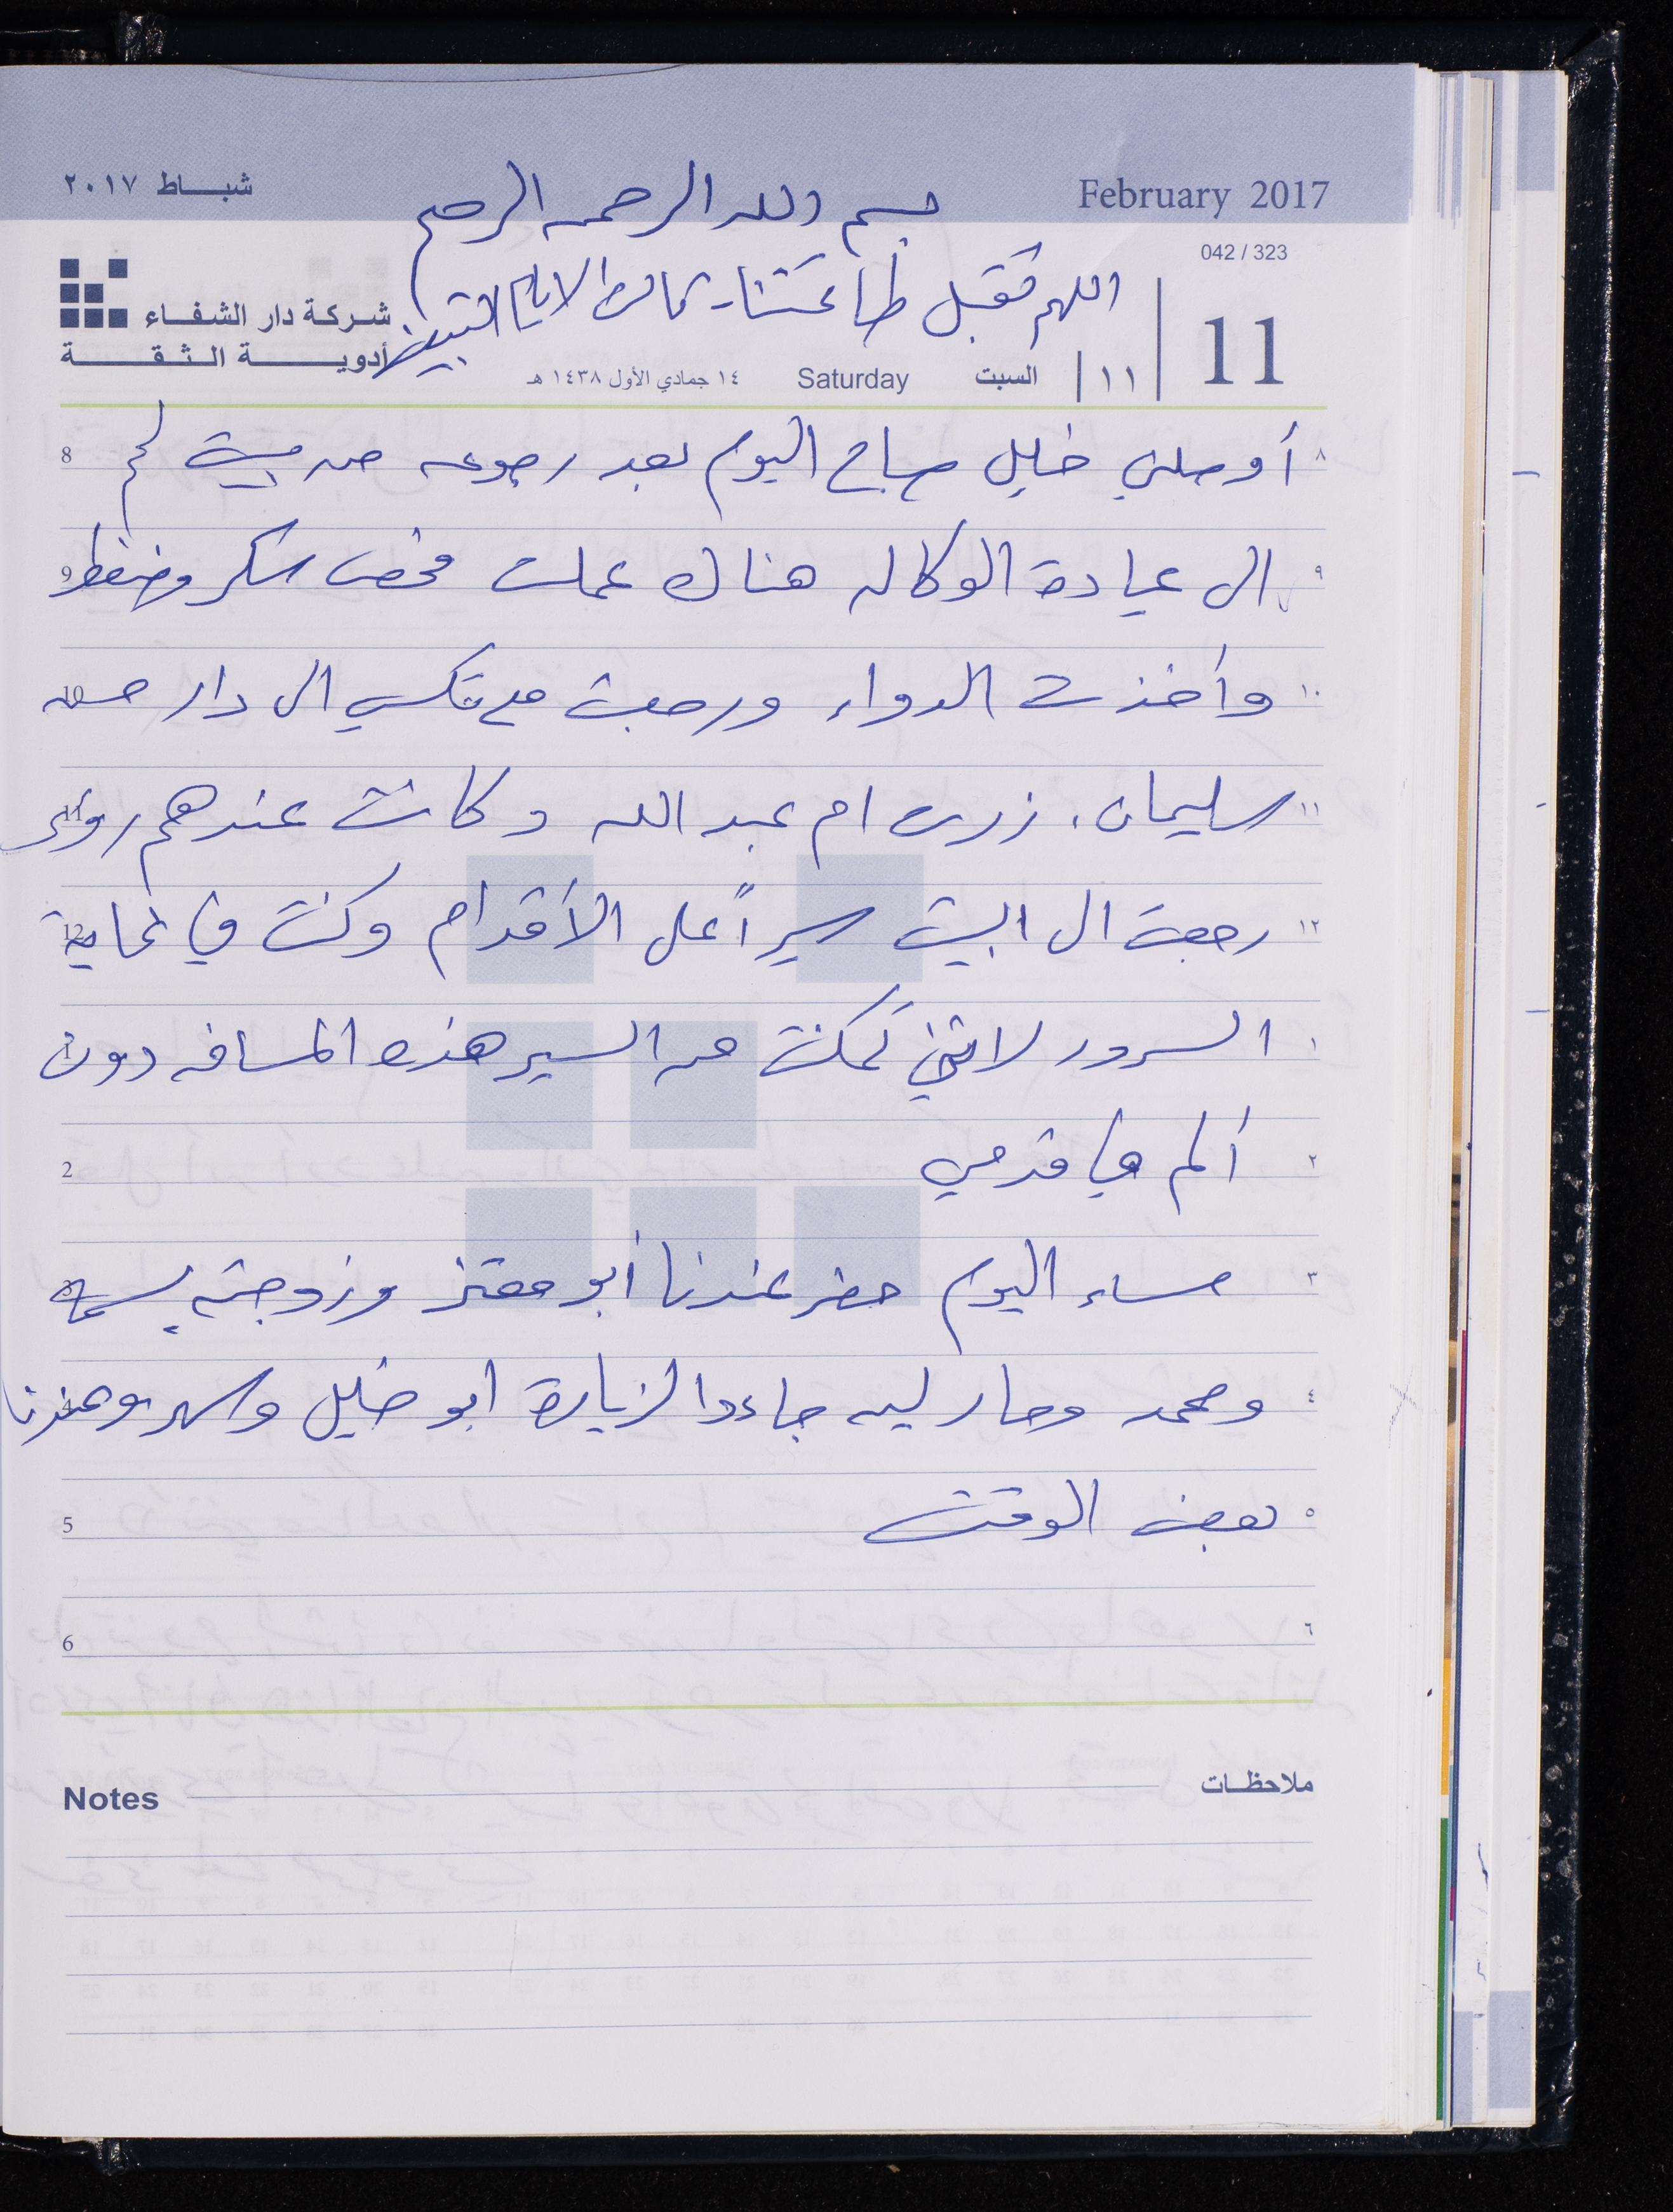 February 2017
شباط ٢٠١٧
بسم الله الرحمن الرحيم
042 / 323
اللهم تقبل طاعتنا الايام
شركة دار الشفاء
أدوية الثقة
11
١١
السبت
Saturday
١٤ جمادي الأول ١٤٣٨ هـ
٨ أوصلني خليل صباح اليوم بعد رجوعه من بيت لحم 8
٩ الى عيادة الوكاله هناك عملت فحص سكر وضغط 9
١٠ وأخذت الدواء ورجعت مع تكسي الى دار حسن 10
١١ سليمان. زرت ام عبد الله وكانت عندهم رؤى 11
١٢ رجعت الى البيت سيراً على الأقدام وكنت في غاية 12
١ السرور لانني تمكنت من السير هذه المسافه دون 1
٢ ألم في قدمي 2
٣ مساء اليوم حضر عندنا أبو معتز وزوجته بسمه 3
٤ ومحمد جاءوا لزيارة ابو خليل وسهروا عندنا 4
٥ بعض الوقت 5
٦ 6
Notes ملاحظات